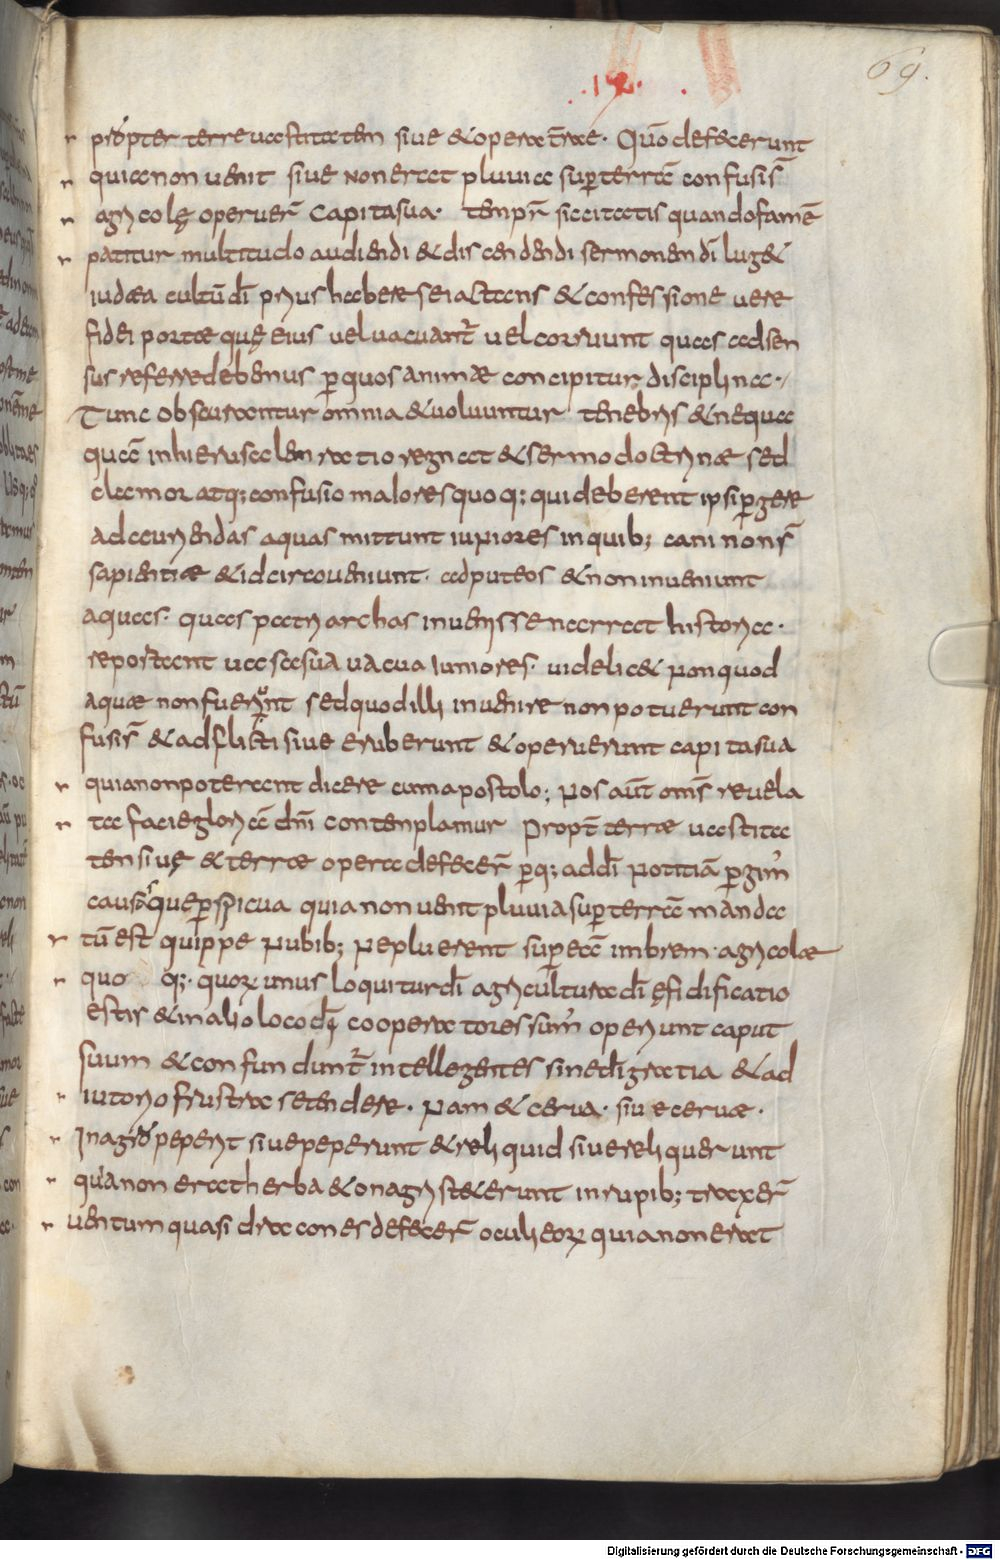 69.
propter terre uastitatem siue & opera t̄rae. Quō defecerunt
quia non uenit siue non erat pluuia sup terrā confusis̄
agricolę operuer̄ capita sua. tenpr̄ siccitatis quando famē
patitur multitudo audiendi & discendendi sermonem dī luge&
iudæa cultū dī prius habere se iactans & confessione uere
fidei portæ quę eius uel uacuant̄ uel corruunt quas ad sen
sus referre debemus p quos animæ concipitur disciplina.
Tunc obscurantur omnia & uoluuntur tenebris & nequa
quā in hierusalem ratio regnat & sermo doctrinæ sed
clamor atq; confusio maiores quoq; qui deberent ipsi pgere
ad auriendas aquas mittunt iuniores in quib; cani non s̄
sapientiæ & idcirco ueniunt. ad puteos & non inueniunt
aquas. quas patriarchas inuenisse narrat historia.
reportant uasa sua uacua iuniores. uidelic& non quod
aquæ non fuerint sed quod illi inuenire non potuerunt con
fusis̄ & adflicti siue eruberunt & operuerunt capita sua
quia non poterant dicere cum apostolo; nos aūt om̄s reuela
ta facie gloriā dn̄i contenplamur Propt̄ terræ uastita
ten siuę & terræ opera defecer̄ pq; ad dī notitiā pgim̄
causasque pspicua quia non uenit pluuia sup terrā manda
tū est quippe nubib; ne pluerent sup eā imbrem. agricolæ
quo q;. quoꝝ unus loquitur dī agricultura dī ęfidificatio
estis & in alio loco dꝗ cooperatores sum̄ operiunt caput
suum & confundunt̄ intellegentes sine dī gratia & ad
iutorio frustra se tendere. Nam & cerua. siue ceruæ.
In agro peperit siue peperunt & reliquid siue reliquerunt
quia non erat herba & onagri st&erunt in rupib; traxer̄
uentum quasi dracones defecer̄ oculi eoꝝ quia non erat
Digitalisierung gefördert durch die Deutsche Forschungsgemeinschaft - DFG